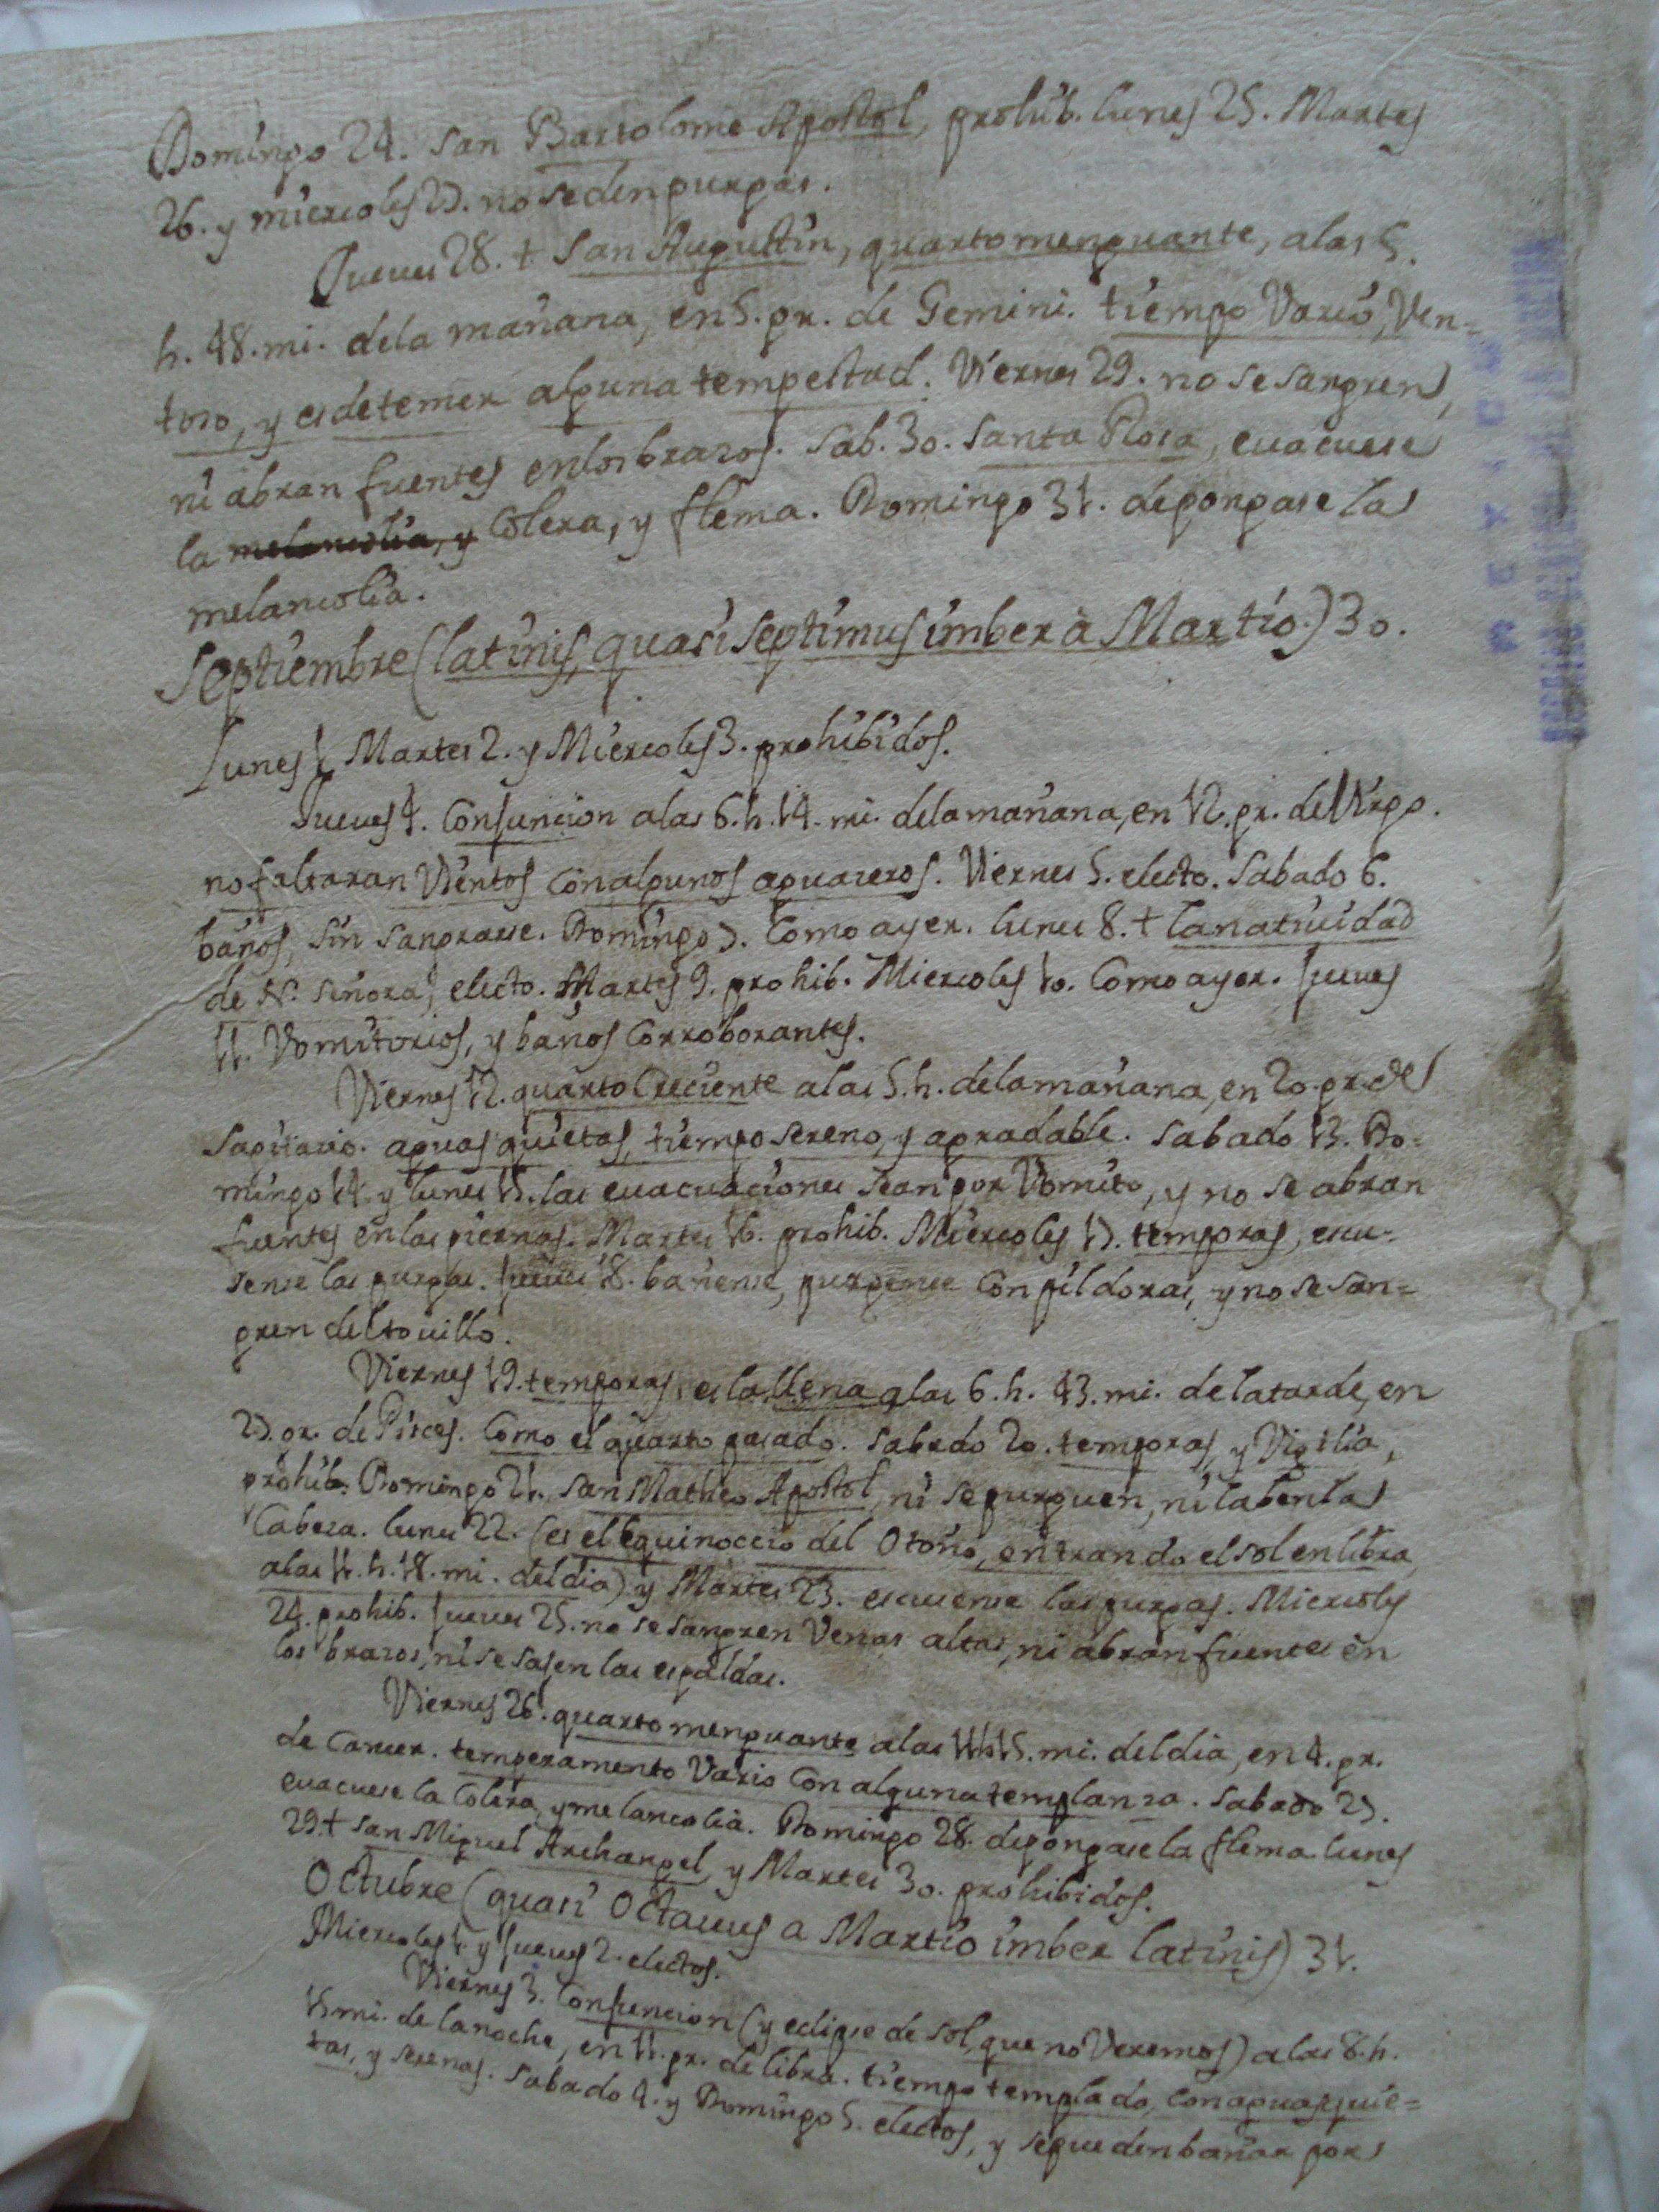 Domingo 24. San Bartolome Apostol, prohib. lunes 25. Martes
26. y miercoles 27. no se den purgas.
Jueves 28. + San Augustin, quarto menguante, a las 5.
h. 48. mi. de la mañana, en 5. gr. de Gemini. tiempo Vario, Ven=
toso, y es de temer alguna tempestad. Viernes 29. no se sangren,
ni abran fuentes en los brazos. Sab. 30. Santa Rosa, evacuese
la melancolia, y Colera, y flema. Domingo 31. depongase la
melancolia.
Septiembre (latinis, quasi septimus imber à Martio.) 30.
Lunes 1. Martes 2. y Miercoles 3. prohibidos.
Jueves 4. Conjuncion a las 6. h. 14. mi. de la mañana, en 12. gr. de Virgo.
no faltaran Vientos con algunos aguaceros. Viernes 5. electo. Sabado 6.
baños, sin sangrarse. Domingo 7. Como ayer. lunes 8. + la natiuidad
de N. Señora, electo. Martes 9. prohib. Miercoles 10. Como ayer. Jueves
11. Vomitorios, y baños Corroborantes.
Viernes 12. quarto Creciente a las 5. h. de la mañana, en 20. gr. de
Sagitario. aguas quietas, tiempo sereno, y agradable. Sabado 13. Do=
mingo 14. y lunes 15. las euacuaciones sean por Vomito, y no se abran
fuentes en las piernas. Martes 16. prohib. Miercoles 17. temporas, escu=
sense las purgas. Jueues 18. bañense, purgense Con pildoras, y no se san=
gren del tovillo.
Viernes 19. temporas, es la llena a las 6. h. 43. mi. de la tarde, en
27. gr. de Pisces. Como el quarto pasado. Sabado 20. temporas, y Vigilia,
prohib. Domingo 21. San Matheo Apostol, ni se purguen, ni laben la
Cabeza. lunes 22. (es el Equinoccio del Otoño, entrando el sol en libra
a las 11. h. 18. mi. del dia) y Martes 23. escusense las purgas. Miercoles
24. prohib. Jueves 25. no se sangren Venas altas, ni abran fuentes en
los brazos, ni se sajen las espaldas.
Viernes 26. quarto menguante a las 11. h. 15. mi. del dia, en 4. gr.
de Cancer. temperamento Vario Con alguna templanza. Sabado 27.
euacuese la Colera, y melancolia. Domingo 28. depongase la flema. lunes
29. + San Miguel Archangel, y Martes 30. prohibidos.
Octubre (quasi Octauus a Martio imber latinis) 31.
Miercoles 1. y Jueues 2. electos.
Viernes 3. Conjuncion (y eclipse de sol, que no Veremos) a las 8. h.
15 mi. de la noche, en 11. gr. de libra. tiempo templado, con aguas quie=
tas, y serenas. Sabado 4. y Domingo 5. electos, y se pueden bañar por